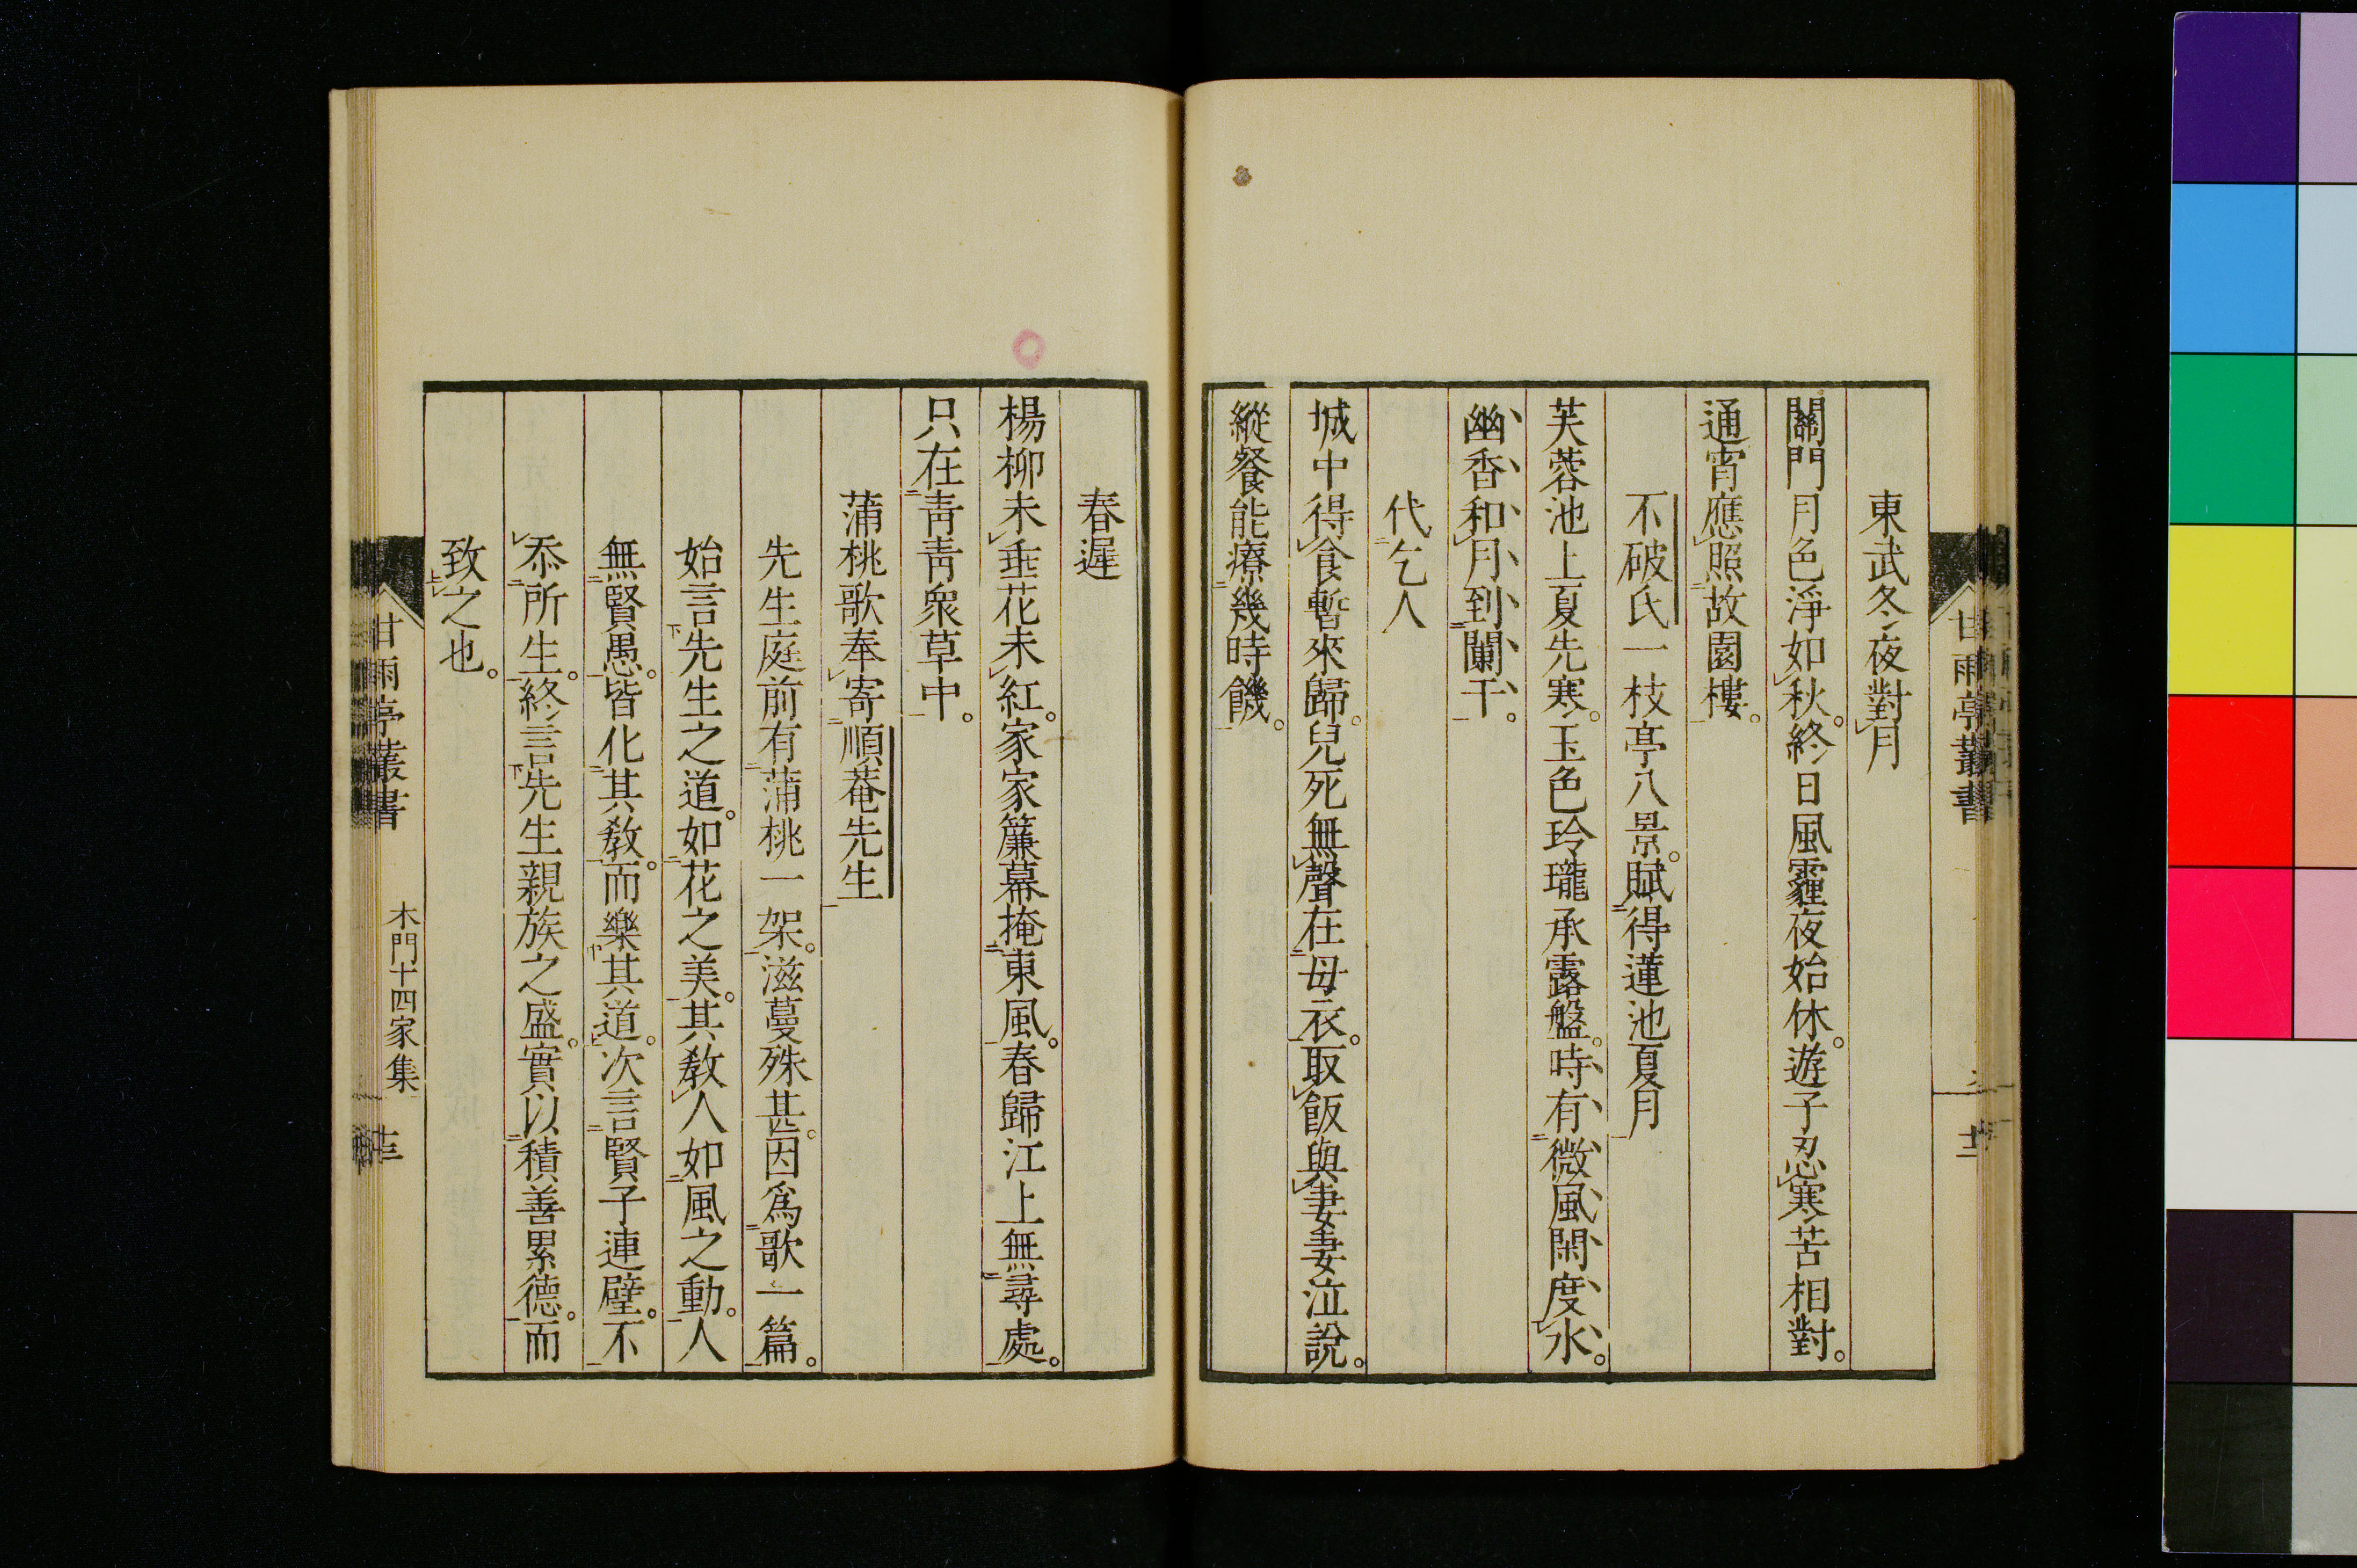 東武冬夜對月
關門月色淨如秋。終日風霾夜始休。遊子忍寒苦相對。
通宵應照故園樓。
不破氏一枝亭八景。賦得蓮池夏月
芙蓉池上夏先寒。玉色玲瓏承露盤。時有微風閑度水。
幽香和月到闌干。
代乞人
城中得食暫來歸。兒死無聲在母衣。取飯與妻妻泣說。
縱餐能療幾時饑。
甘雨亭叢書
春遲
楊柳未垂花未紅。家家簾幕掩東風。春歸江上無尋處。
只在青青衆草中。
蒲桃歌奉寄順菴先生
先生庭前有蒲桃一架。滋蔓殊甚。因爲歌一篇。
始言先生之道。如花之美。其教人如風之動。人
無賢愚。皆化其教。而樂其道。次言賢子連璧。不
忝所生。終言先生親族之盛。實以積善累德。而
致之也。
甘雨亭叢書 木門十四家集